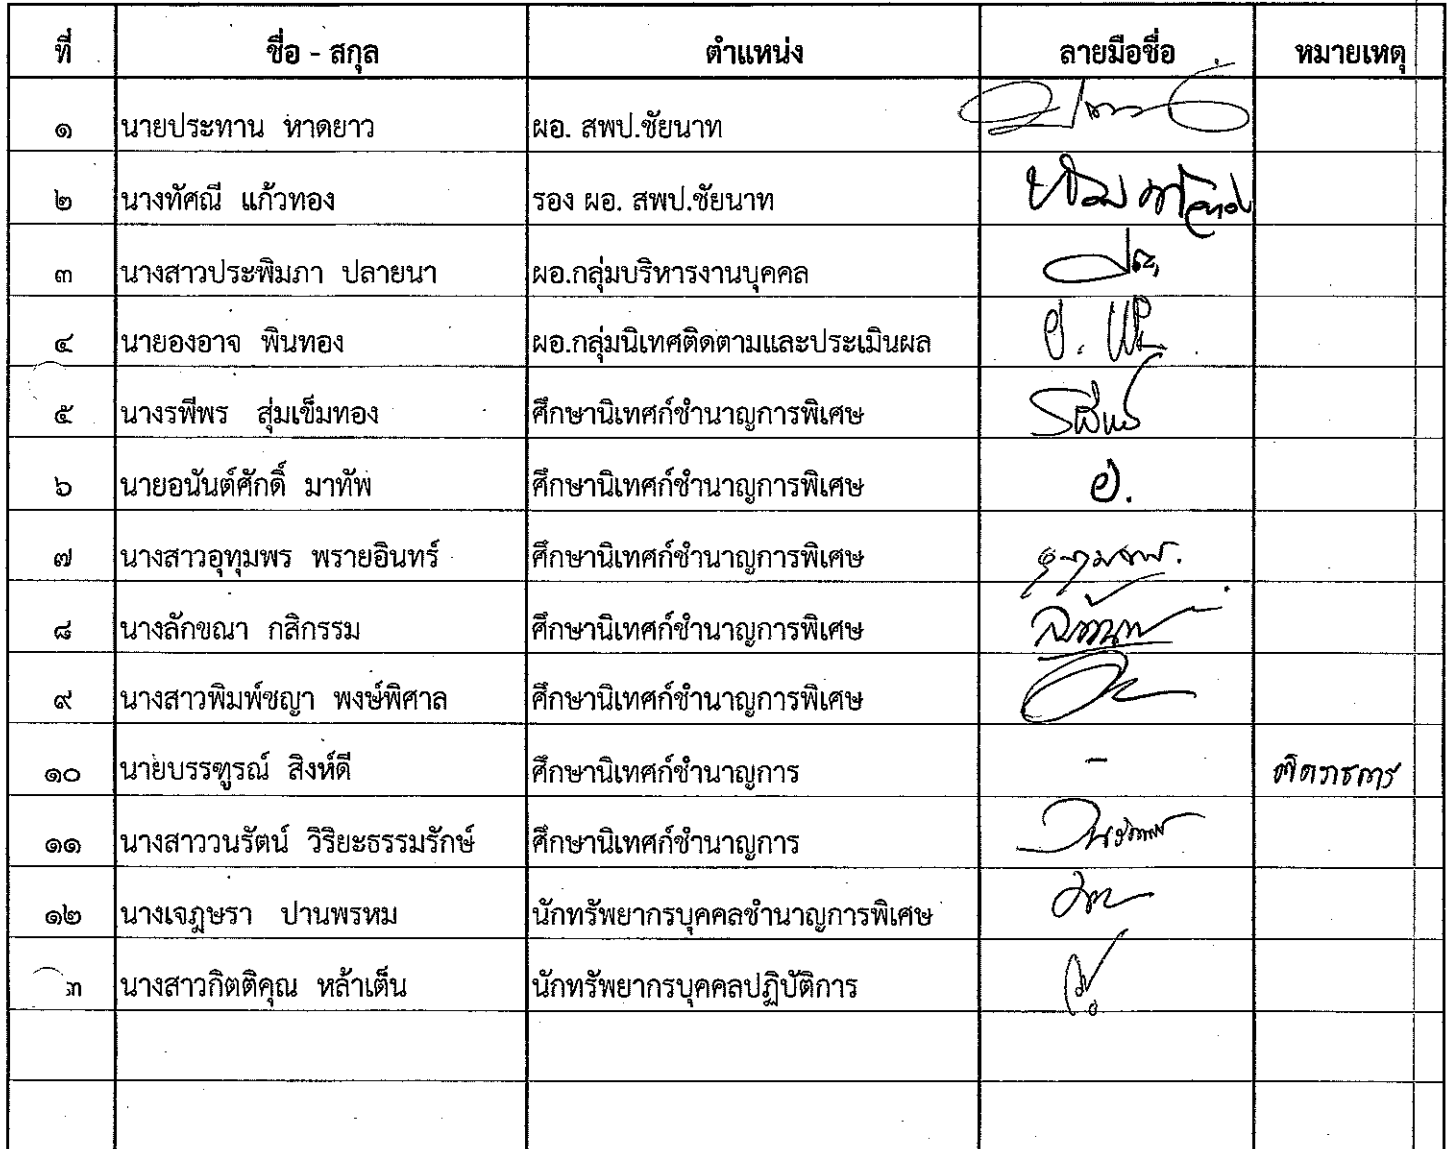 ที่ ชื่อ - สกุล ตำแหน่ง ลายมือชื่อ หมายเหตุ
๑ นายประทาน หาดยาว ผอ. สพป.ชัยนาท
๒ นางทัศณี แก้วทอง รอง ผอ. สพป.ชัยนาท
๓ นางสาวประพิมภา ปลายนา ผอ.กลุ่มบริหารงานบุคคล
๔ นายองอาจ พินทอง ผอ.กลุ่มนิเทศติดตามและประเมินผล
๕ นางรพีพร สุ่มเข็มทอง ศึกษานิเทศก์ชำนาญการพิเศษ
๖ นายอนันต์ศักดิ์ มาทัพ ศึกษานิเทศก์ชำนาญการพิเศษ
๗ นางสาวอุทุมพร พรายอินทร์ ศึกษานิเทศก์ชำนาญการพิเศษ
๘ นางลักขณา กสิกรรม ศึกษานิเทศก์ชำนาญการพิเศษ
๙ นางสาวพิมพ์ชญา พงษ์พิศาล ศึกษานิเทศก์ชำนาญการพิเศษ
๑๐ นายบรรฑูรณ์ สิงห์ดี ศึกษานิเทศก์ชำนาญการ - ติดราชการ
๑๑ นางสาววนรัตน์ วิริยะธรรมรักษ์ ศึกษานิเทศก์ชำนาญการ
๑๒ นางเจฎษรา ปานพรหม นักทรัพยากรบุคคลชำนาญการพิเศษ
๓ นางสาวกิตติคุณ หล้าเต็น นักทรัพยากรบุคคลปฏิบัติการ